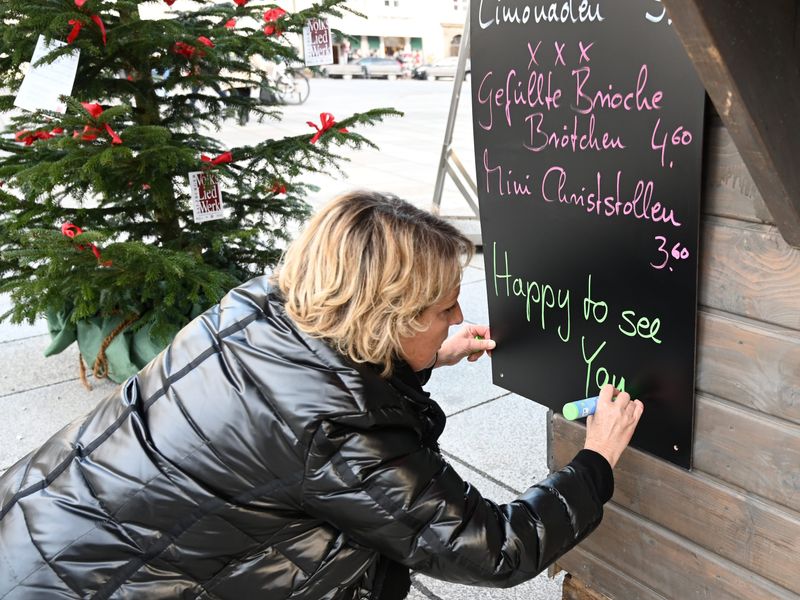 Limonaden 3.
x x x
Gefüllte Brioche
Brötchen 4.60
Mini Christstollen
3.60
Happy to see
You
Volks
Lied
Werk
Volks
Lied
Werk